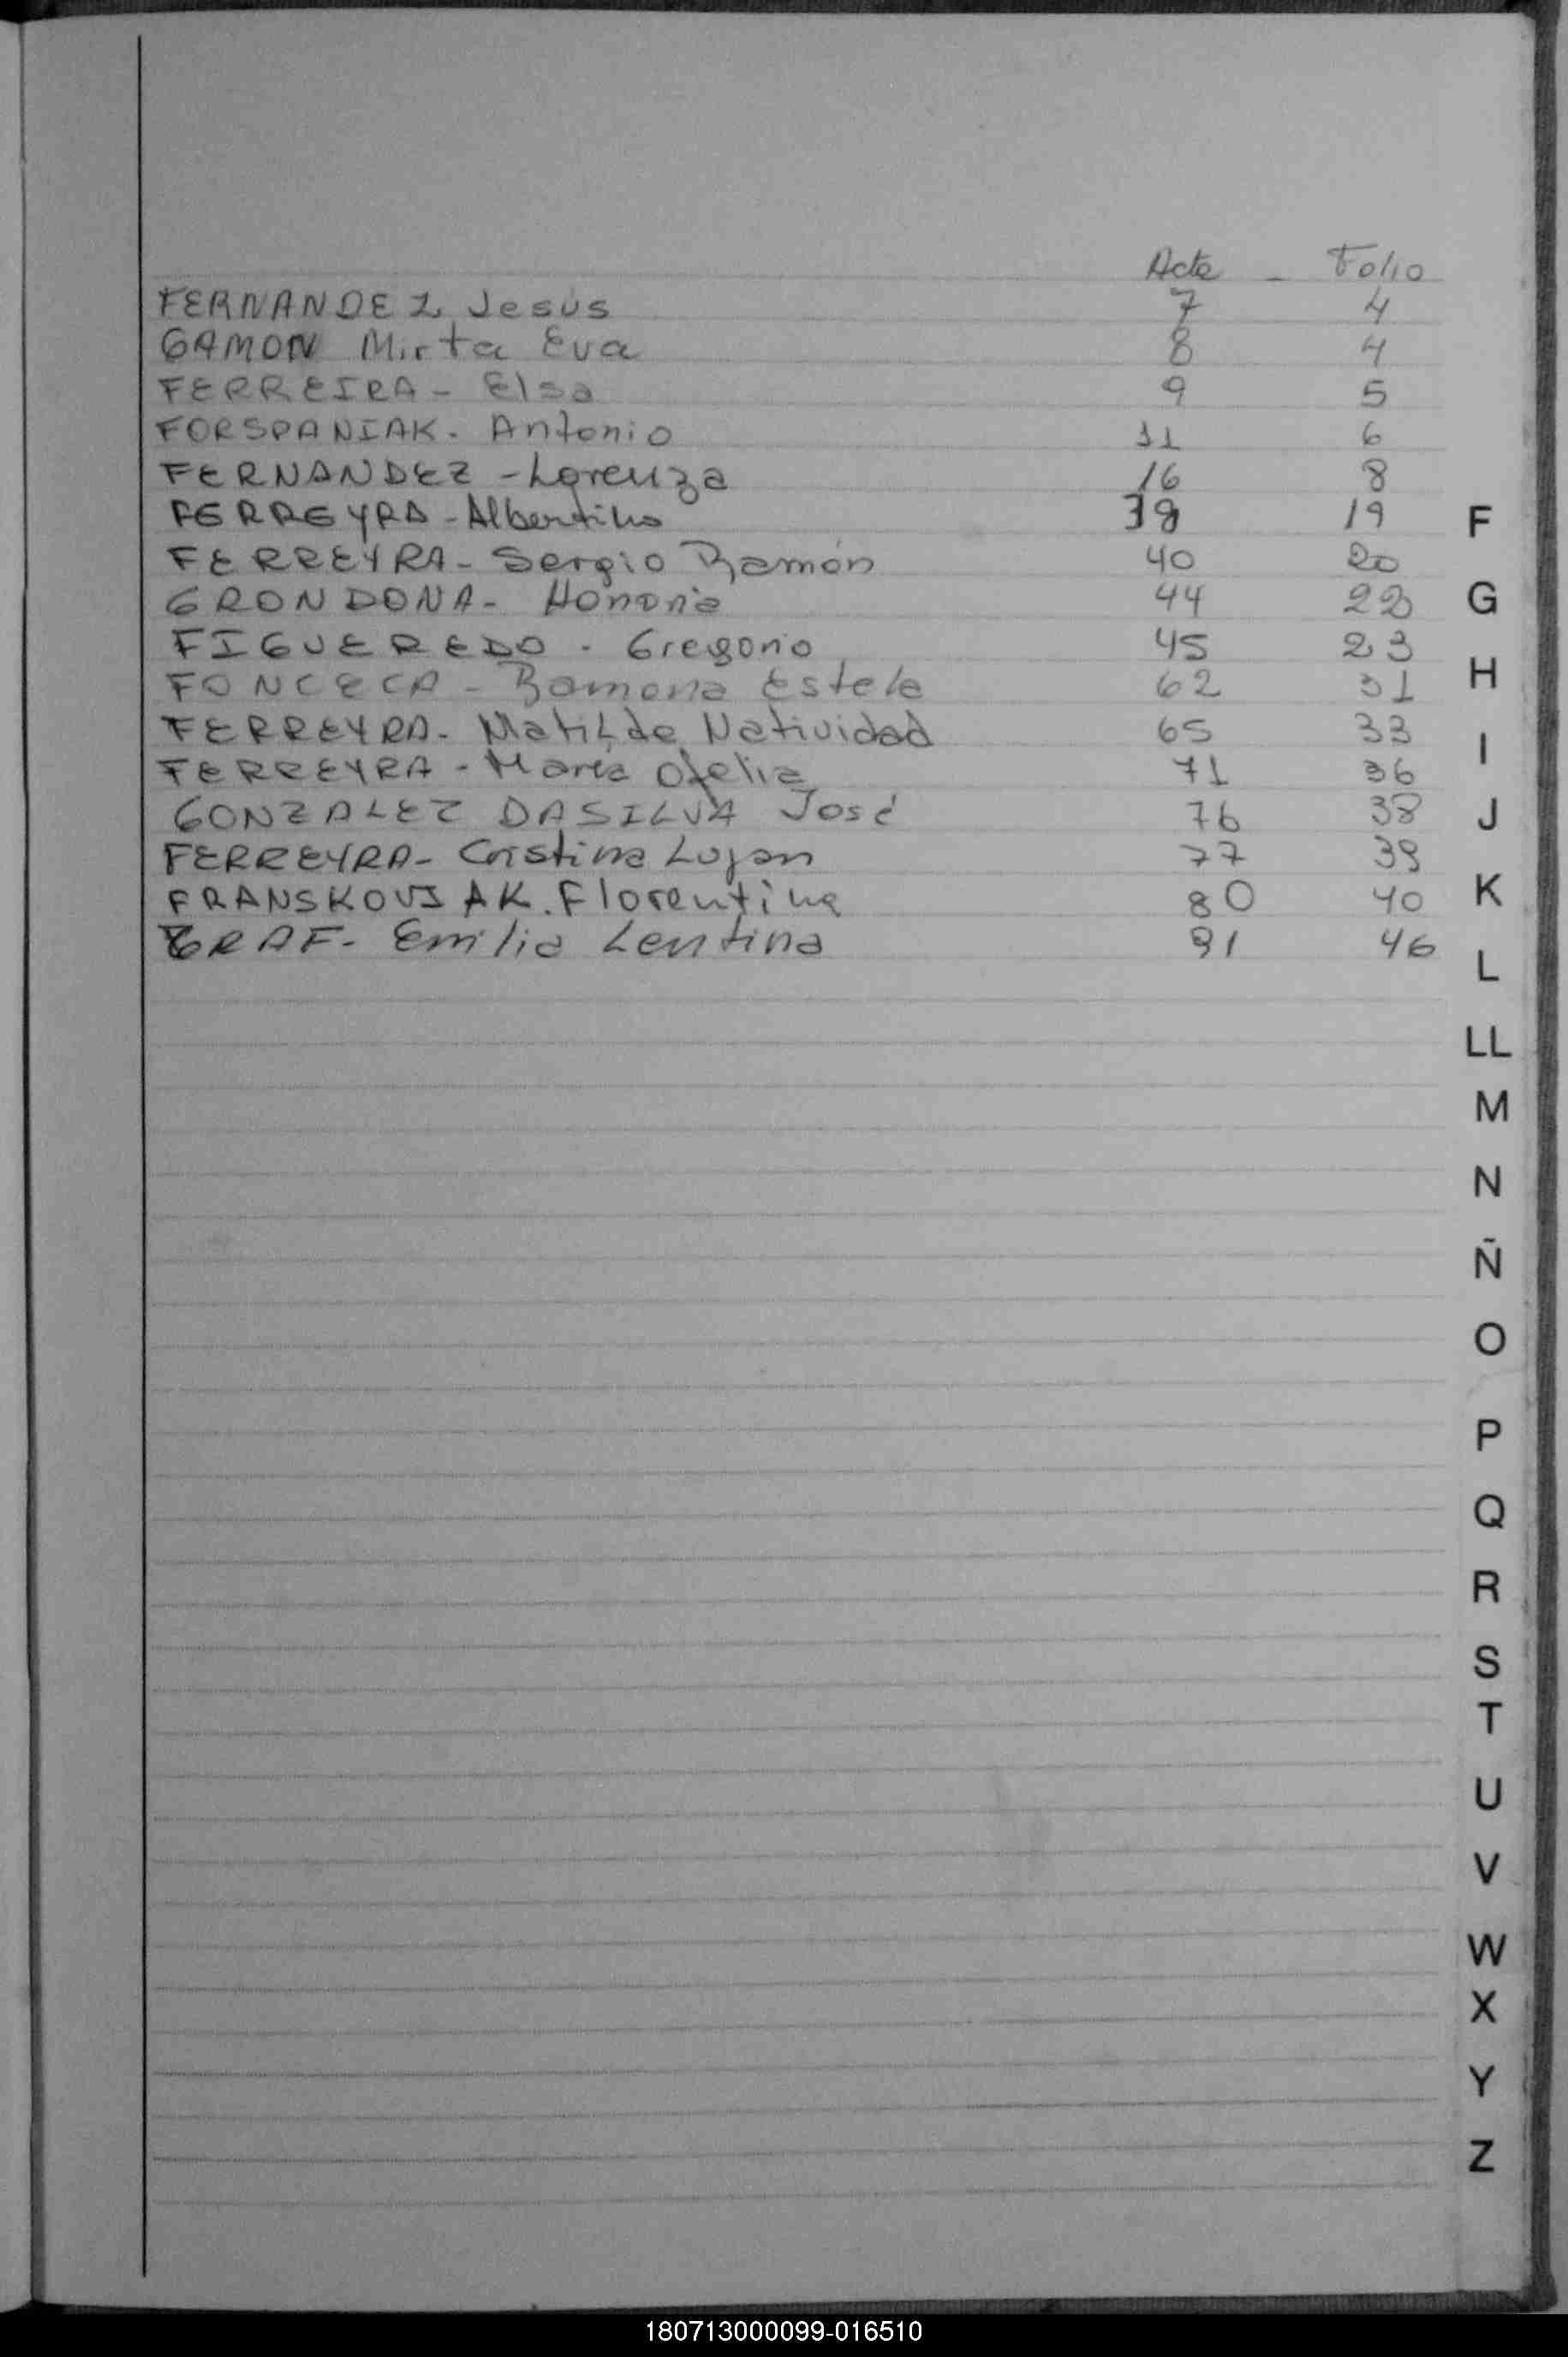 Acta - Folio
FERNANDEZ Jesús 7 4
GAMON Mirta Eva 8 4
FERREIRA - Elsa 9 5
FORSPANIAK. Antonio 11 6
FERNANDEZ - Lorenza 16 8
FERREYRA - Albertino 38 19
F
FERREYRA - Sergio Ramón 40 20
GRONDONA - Honoria 44 22
G
FIGUEREDO - Gregorio 45 23
FONCECA - Ramona Estela 62 31
H
FERREYRA - Matilde Natividad 65 33
I
FERREYRA - María Ofelia 71 36
GONZALEZ DASILVA José 76 38
J
FERREYRA - Cristina Lujan 77 39
FRANSKOVIAK. Florentina 80 40
K
GRAF - Emilia Lentina 91 46
L
LL
M
N
Ñ
O
P
Q
R
S
T
U
V
W
X
Y
Z
180713000099-016510